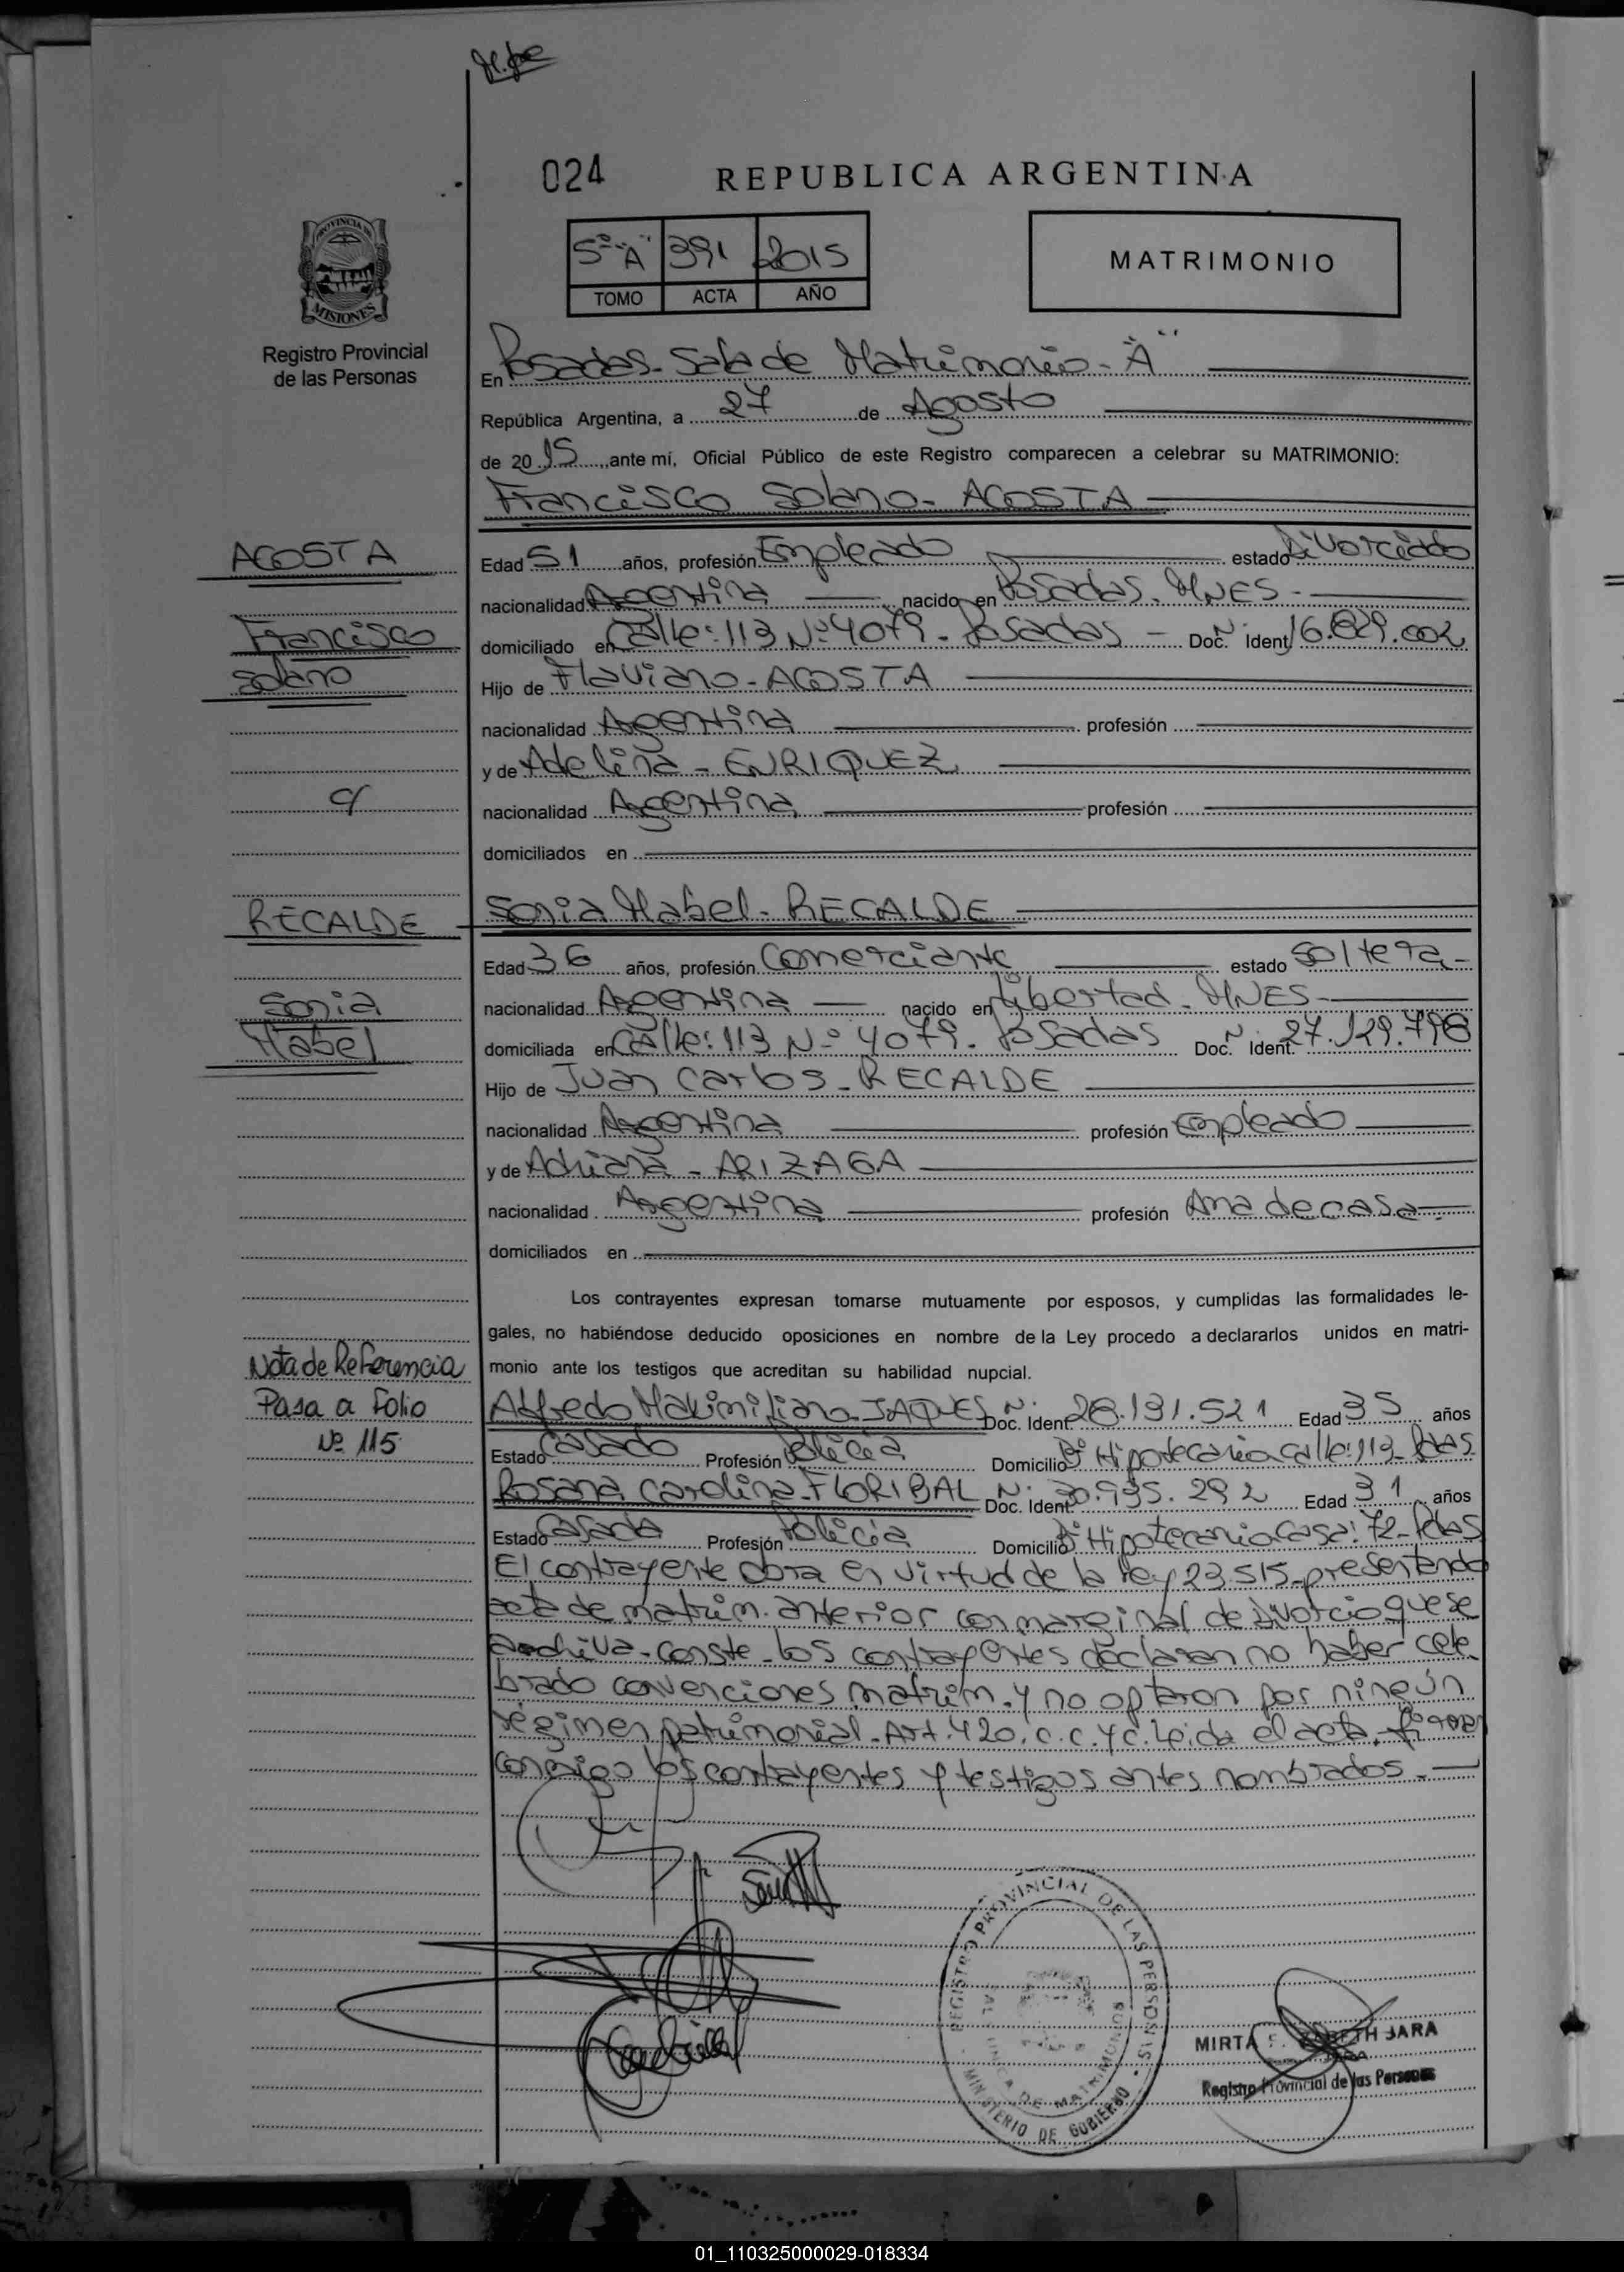 024
REPUBLICA ARGENTINA
PROVINCIA DE
MISIONES
Registro Provincial
de las Personas
5º "A" 391 2015
TOMO ACTA AÑO
MATRIMONIO
En Posadas - Sala de Matrimonio - "A"
República Argentina, a 27 de Agosto
de 2015, ante mí, Oficial Público de este Registro comparecen a celebrar su MATRIMONIO:
Francisco Solano - ACOSTA
ACOSTA
Edad 51 años, profesión Empleado estado Divorciado
nacionalidad Argentina nacido en Posadas. MNES -
Francisco
domiciliado en Calle: 113 Nº 4079 - Posadas - Doc. Nº Ident 16.829.002
Solano
Hijo de Flaviano - ACOSTA
nacionalidad Argentina profesión
y de Adelina - ENRIQUEZ
c/
nacionalidad Argentina profesión
domiciliados en
RECALDE
Sonia Mabel - RECALDE
Edad 36 años, profesión Comerciante estado Soltera -
Sonia
nacionalidad Argentina nacido en Libertad - MNES -
Mabel
domiciliada en Calle: 113 Nº 4079 - Posadas Doc. Nº Ident. 27.129.798
Hijo de Juan Carlos - RECALDE
nacionalidad Argentina profesión Empleado
y de Adriana - ARIZAGA
nacionalidad Argentina profesión Ama de casa -
domiciliados en
Los contrayentes expresan tomarse mutuamente por esposos, y cumplidas las formalidades le-
gales, no habiéndose deducido oposiciones en nombre de la Ley procedo a declararlos unidos en matri-
Nota de Referencia
monio ante los testigos que acreditan su habilidad nupcial.
Pasa a Folio
Alfredo Maximiliano JAQUES Doc. Nº Ident 28.131.521 Edad 35 años
Nº 115
Estado Casado Profesión Policía Domicilio Bº Hipotecario Calle: 113 - Pdas
Rosana Carolina - FLORIBAL Doc. Nº Ident. 30.935.292 Edad 31 años
Estado Casada Profesión Policía Domicilio Bº Hipotecario Casa: 72 - Pdas
El contrayente obra en virtud de la ley 23.515 - presentando
acta de matrim. anterior con marginal de divorcio que se
archiva - conste - los contrayentes declaran no haber cele-
brado convenciones matrim. y no optaron por ningún
régimen patrimonial - Art. 420. C.C. y C. Leída el acta - firman
conmigo los contrayentes y testigos antes nombrados. -
REGISTRO PROVINCIAL DE LAS PERSONAS
DE MATRIMONIOS
MINISTERIO DE GOBIERNO
MIRTA JARA
Registro Provincial de las Personas
01_110325000029-018334